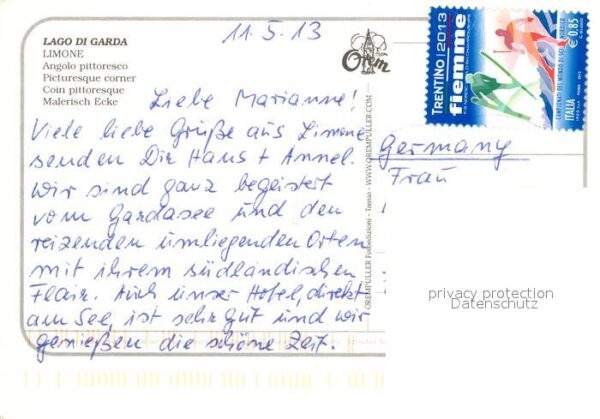 LAGO DI GARDA
LIMONE
Angolo pittoresco
Picturesque corner
Coin pittoresque
Malerisch Ecke
11.5.13
Orem
TRENTINO | 2013
fiemme
€ 0,85
ITALIA
Liebe Marianne!
Viele liebe Grüße aus Limone
senden Dir Hans + Annel.
Wir sind ganz begeistert
vom Gardasee und den
reizenden umliegenden Orten
mit ihrem südländischen
Flair. Auch unser Hotel, direkt
am See, ist sehr gut und wir
genießen die schöne Zeit.
Germany
Frau
OREMPULLER Fotoedizioni - Trento - WWW.OREMPULLER.COM
privacy protection
Datenschutz